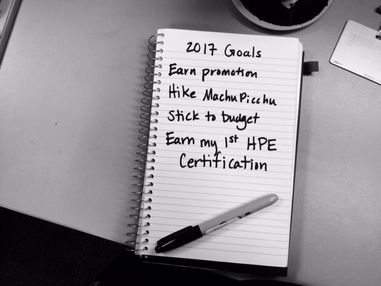 2017 Goals
Earn promotion
Hike Machu Picchu
Stick to budget
Earn my 1st HPE
Certification